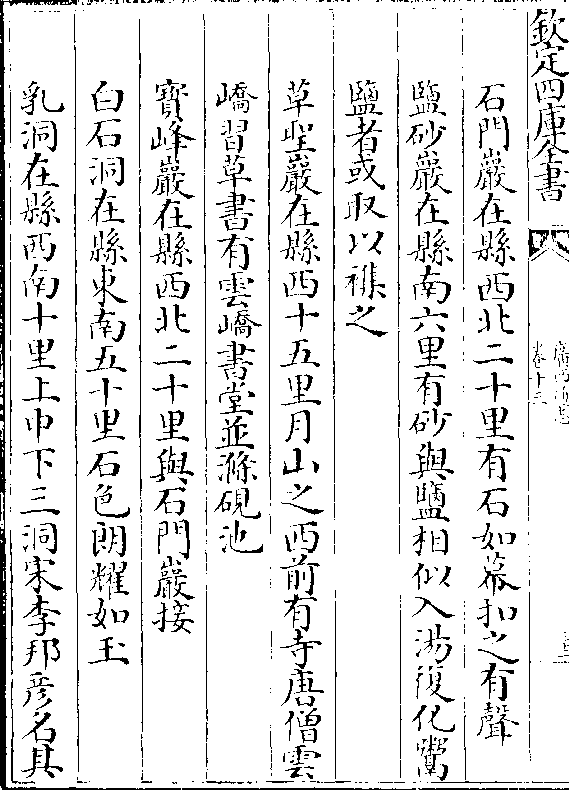 欽定四庫全書
廣西通志
卷十三
石門巖在縣西北二十里有石如幕扣之有聲
鹽砂巖在縣南六里有砂與鹽相似入湯復化鬻
鹽者或取以襍之
草聖巖在縣西十五里月山之西前有寺唐僧雲
嶠習草書有雲嶠書堂並滌硯池
寶峰巖在縣西北二十里與石門巖接
白石洞在縣東南五十里石色朗耀如玉
乳洞在縣西南十里上中下三洞宋李邦彦名其